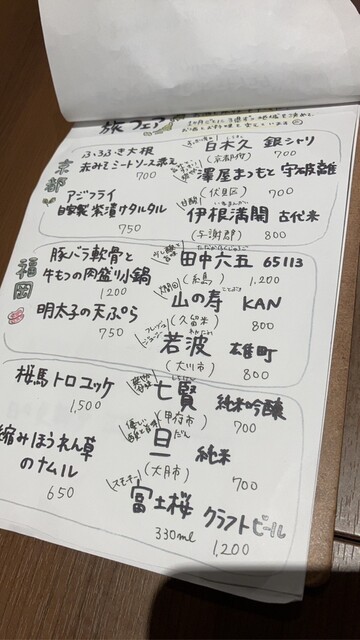 旅フェア
京都
ふろふき大根
赤みそミートソース添え
700
アジフライ
自家製 柴漬けタルタル
750
白木久 銀シャリ
(京都府) 700
澤屋まつもと 守破離
(伏見区) 700
伊根満開 古代米
(与謝郡) 800
福岡
豚バラ軟骨と
牛もつの肉盛り小鍋
1200
明太子の天ぷら
750
田中六五 65113
(糸島) 1,200
山の寿 KAN
(久留米) 800
フレッシュ
ジューシー
若波 雄町
(大川市) 800
桜馬トロユッケ
1,500
縮みほうれん草
のナムル
650
七賢 純米吟醸
(甲府市) 700
旦 純米
だん
(大月市) 700
スモーキー
富士桜 クラフトビール
330ml 1,200